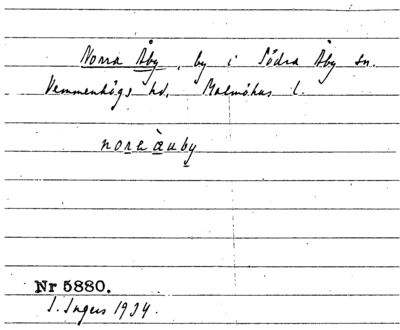 Norra Åby, by i Södra Åby sn.
Vemmenhögs hd, Malmöhus l.
nora àuby
Nr 5880.
I. Ingers 1934.